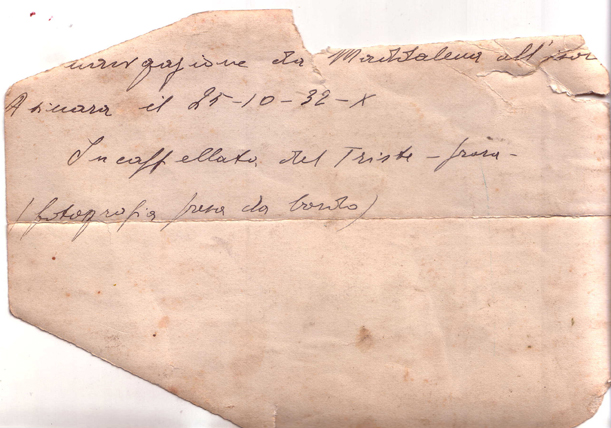 navigazione da Maddalena all'isor
Asinara il 25-10-32-X
Incappellata del Trieste - presa -
(fotografia presa da bordo)